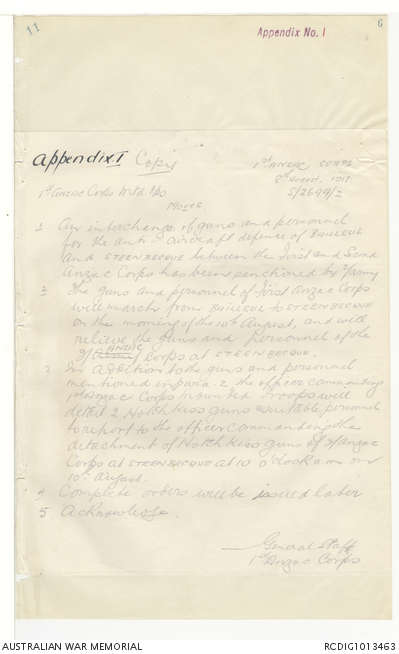 11
6
Appendix No. 1
Appendix I Copy
1st ANZAC CORPS
8th August, 1917
S/2699/2
1st Anzac Corps Mtd Tps
1 An interchange of guns and personnel
for the anti-aircraft defence of BAILLEUL
and STEENBECQUE between the First and Second
Anzac Corps has been sanctioned by Army
2 The guns and personnel of First Anzac Corps
will march from BAILLEUL to STEENBECQUE
on the morning of the 10th August, and will
relieve the guns and personnel of the
ANZAC
2/ Corps at STEENBECQUE.
3 In addition to the guns and personnel
mentioned in para 2, the officer commanding
1st Anzac Corps Mounted Troops will
detail 2 Hotchkiss guns & suitable personnel
to report to the officer commanding the
detachment of Hotchkiss guns of 2/Anzac
Corps at STEENBECQUE at 10 o'clock am on
10th August.
4 Complete orders will be issued later
5 Acknowledge.
General Staff
1st Anzac Corps
AUSTRALIAN WAR MEMORIAL
RCDIG1013463